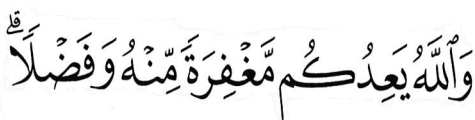 وَٱللَّهُ يَعِدُكُم مَّغْفِرَةً مِّنْهُ وَفَضْلًاۗ